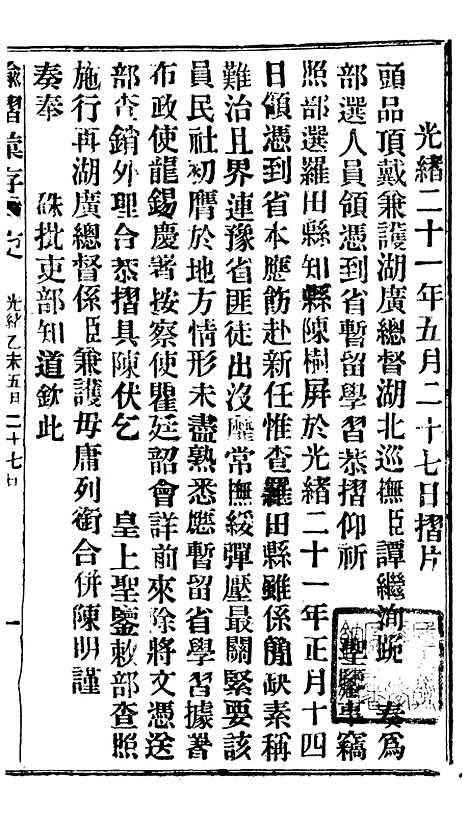 光緒二十一年五月二十七日摺片
頭品頂戴兼護湖廣總督湖北巡撫臣譚繼洵跪 奏爲
部選人員領憑到省暫留學習恭摺仰祈 聖鑒事竊
照部選羅田縣知縣陳樹屏於光緒二十一年正月十四
日領憑到省本應飭赴新任惟查羅田縣雖係簡缺素稱
難治且界連豫省匪徒出沒靡常撫綏彈壓最關緊要該
員民社初膺於地方情形未盡熟悉應暫留省學習據署
布政使龍錫慶署按察使瞿廷韶會詳前來除將文憑送
部查銷外理合恭摺具陳伏乞 皇上聖鑒敕部查照
施行再湖廣總督係臣兼護毋庸列銜合併陳明謹
奏奉 硃批吏部知道欽此
諭摺彙存 光緒乙未五月二十七日 一